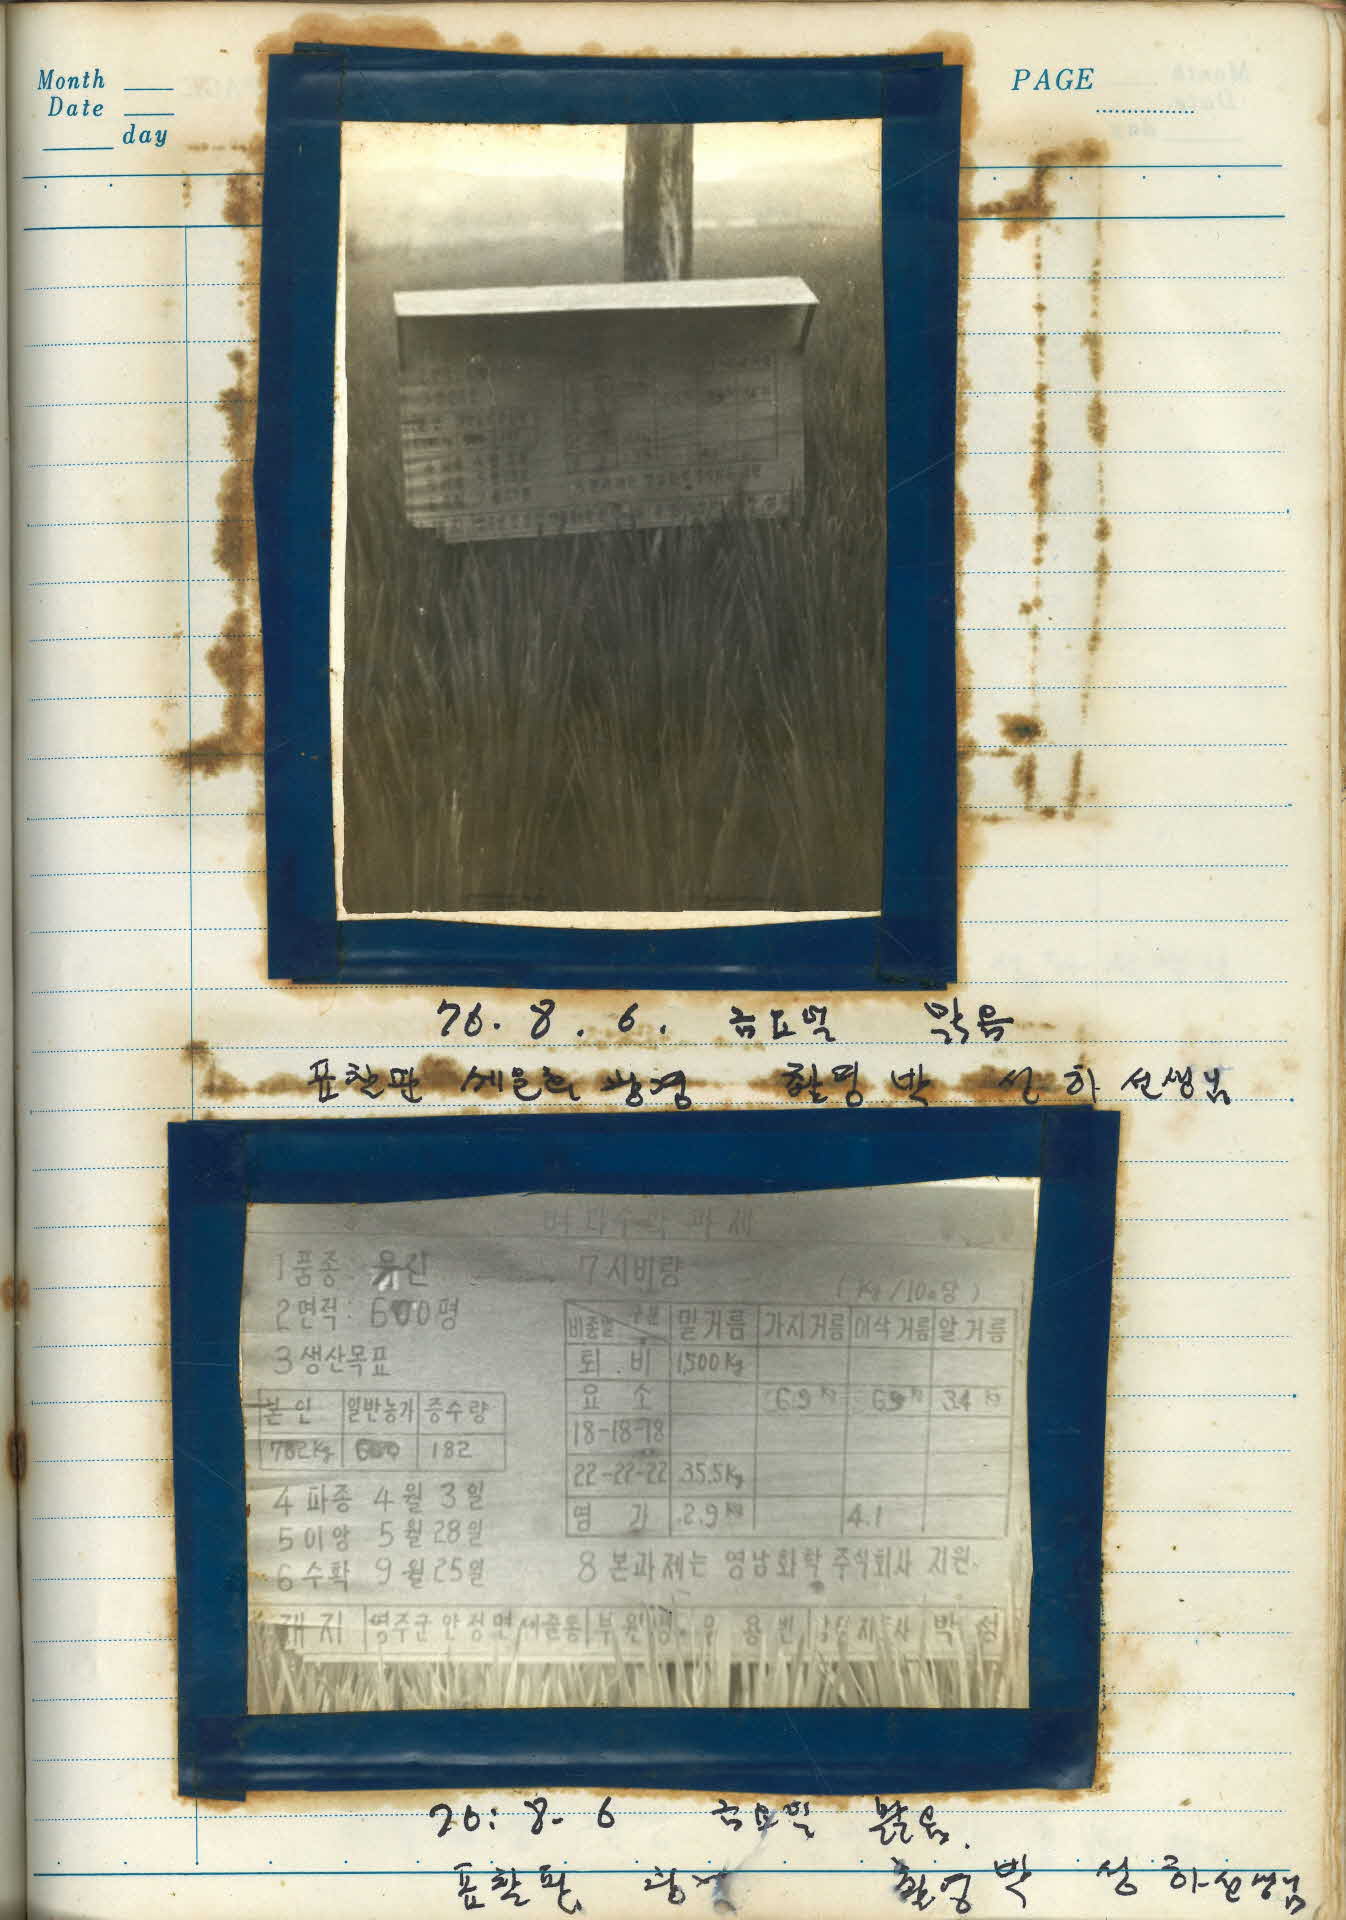 Month
Date
day
PAGE
76. 8. 6. 금요일 맑음
표찰판 세운 광경 촬영 박 성하 선생님
벼 다수확 과제
1 품종: 유신
2 면적: 600평
3 생산목표
본인 일반농가 증수량
782Kg 600 182
4 파종 4월 3일
5 이앙 5월 28일
6 수확 9월 25일
7 시비량
(Kg/10a당)
비종별 구분 밑거름 가지거름 이삭거름 알거름
퇴비 1,500Kg
요소 6.9 6.9 3.4
18-18-18
22-22-22 35.5Kg
염가 2.9Kg 4.1
8 본과제는 영남화학 주식회사 지원.
영주군 안정면 부원 용 박 성
76: 8. 6 금요일 맑음.
표찰판 촬영 박 성하 선생님